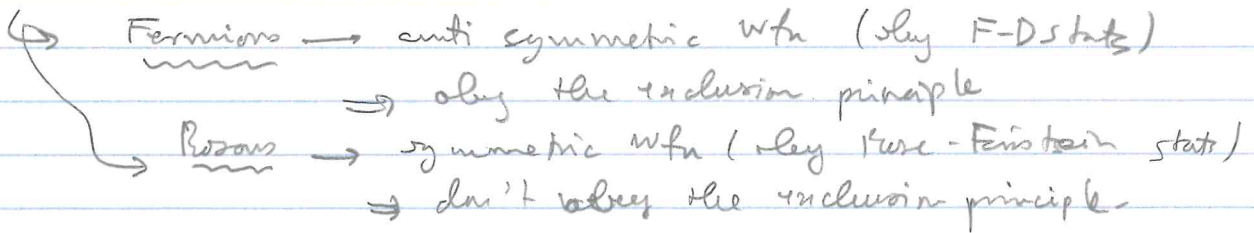 ↳ Fermions → anti symmetric wfn (obey F-D stats)
⇒ obey the exclusion principle
↳ Bosons → symmetric wfn (obey Bose-Einstein stats)
⇒ don't obey the exclusion principle.